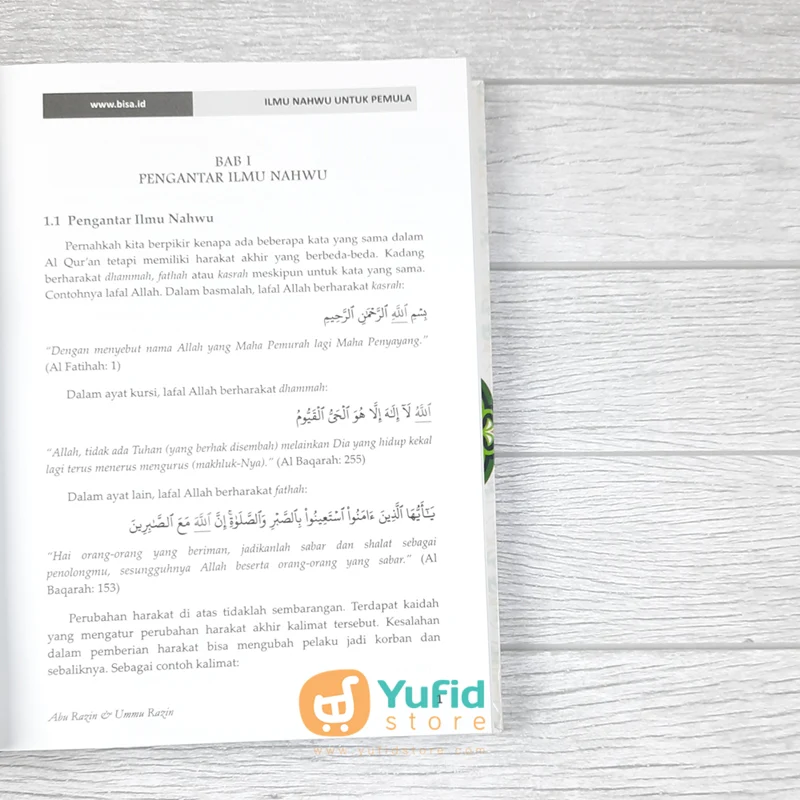 www.bisa.id ILMU NAHWU UNTUK PEMULA
BAB I
PENGANTAR ILMU NAHWU
1.1 Pengantar Ilmu Nahwu
Pernahkah kita berpikir kenapa ada beberapa kata yang sama dalam
Al Qur'an tetapi memiliki harakat akhir yang berbeda-beda. Kadang
berharakat dhammah, fathah atau kasrah meskipun untuk kata yang sama.
Contohnya lafal Allah. Dalam basmalah, lafal Allah berharakat kasrah:
بِسْمِ ٱللَّهِ ٱلرَّحْمَٰنِ ٱلرَّحِيمِ
"Dengan menyebut nama Allah yang Maha Pemurah lagi Maha Penyayang."
(Al Fatihah: 1)
Dalam ayat kursi, lafal Allah berharakat dhammah:
ٱللَّهُ لَآ إِلَٰهَ إِلَّا هُوَ ٱلْحَىُّ ٱلْقَيُّومُ
"Allah, tidak ada Tuhan (yang berhak disembah) melainkan Dia yang hidup kekal
lagi terus menerus mengurus (makhluk-Nya)." (Al Baqarah: 255)
Dalam ayat lain, lafal Allah berharakat fathah:
يَٰٓأَيُّهَا ٱلَّذِينَ ءَامَنُوا۟ ٱسْتَعِينُوا۟ بِٱلصَّبْرِ وَٱلصَّلَوٰةِ ۚ إِنَّ ٱللَّهَ مَعَ ٱلصَّٰبِرِينَ
"Hai orang-orang yang beriman, jadikanlah sabar dan shalat sebagai
penolongmu, sesungguhnya Allah beserta orang-orang yang sabar." (Al
Baqarah: 153)
Perubahan harakat di atas tidaklah sembarangan. Terdapat kaidah
yang mengatur perubahan harakat akhir kalimat tersebut. Kesalahan
dalam pemberian harakat bisa mengubah pelaku jadi korban dan
sebaliknya. Sebagai contoh kalimat:
Abu Razin & Ummu Razin 1
Yufid
store
www.yufidstore.com